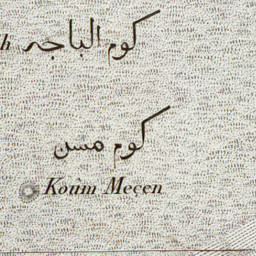 h كوم الباجه
كوم مسن
Koûm Meçen